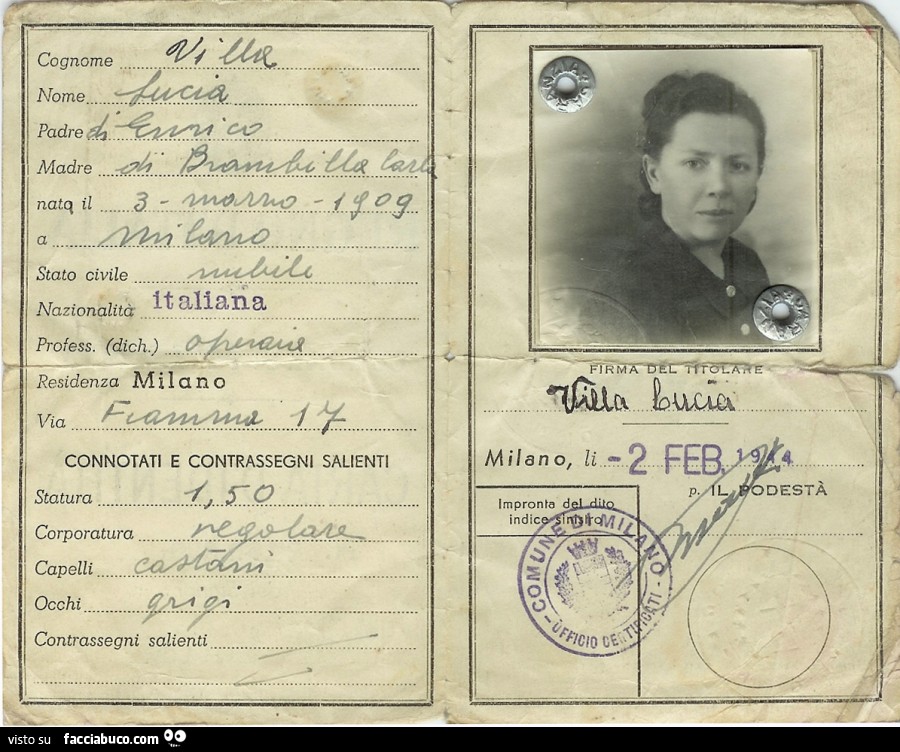 Cognome Villa
Nome Lucia
Padre di Enrico
Madre di Brambilla Carla
nata il 3 - marzo - 1909
a Milano
Stato civile nubile
Nazionalità italiana
Profess. (dich.) operaia
Residenza Milano
Via Fiamma 17
CONNOTATI E CONTRASSEGNI SALIENTI
Statura 1,50
Corporatura regolare
Capelli castani
Occhi grigi
Contrassegni salienti
FIRMA DEL TITOLARE
Villa Lucia
Milano, li - 2 FEB. 1944
p. IL PODESTÀ
Impronta del dito
indice sinistro
COMUNE DI MILANO
- UFFICIO CERTIFICATI -
visto su facciabuco.com